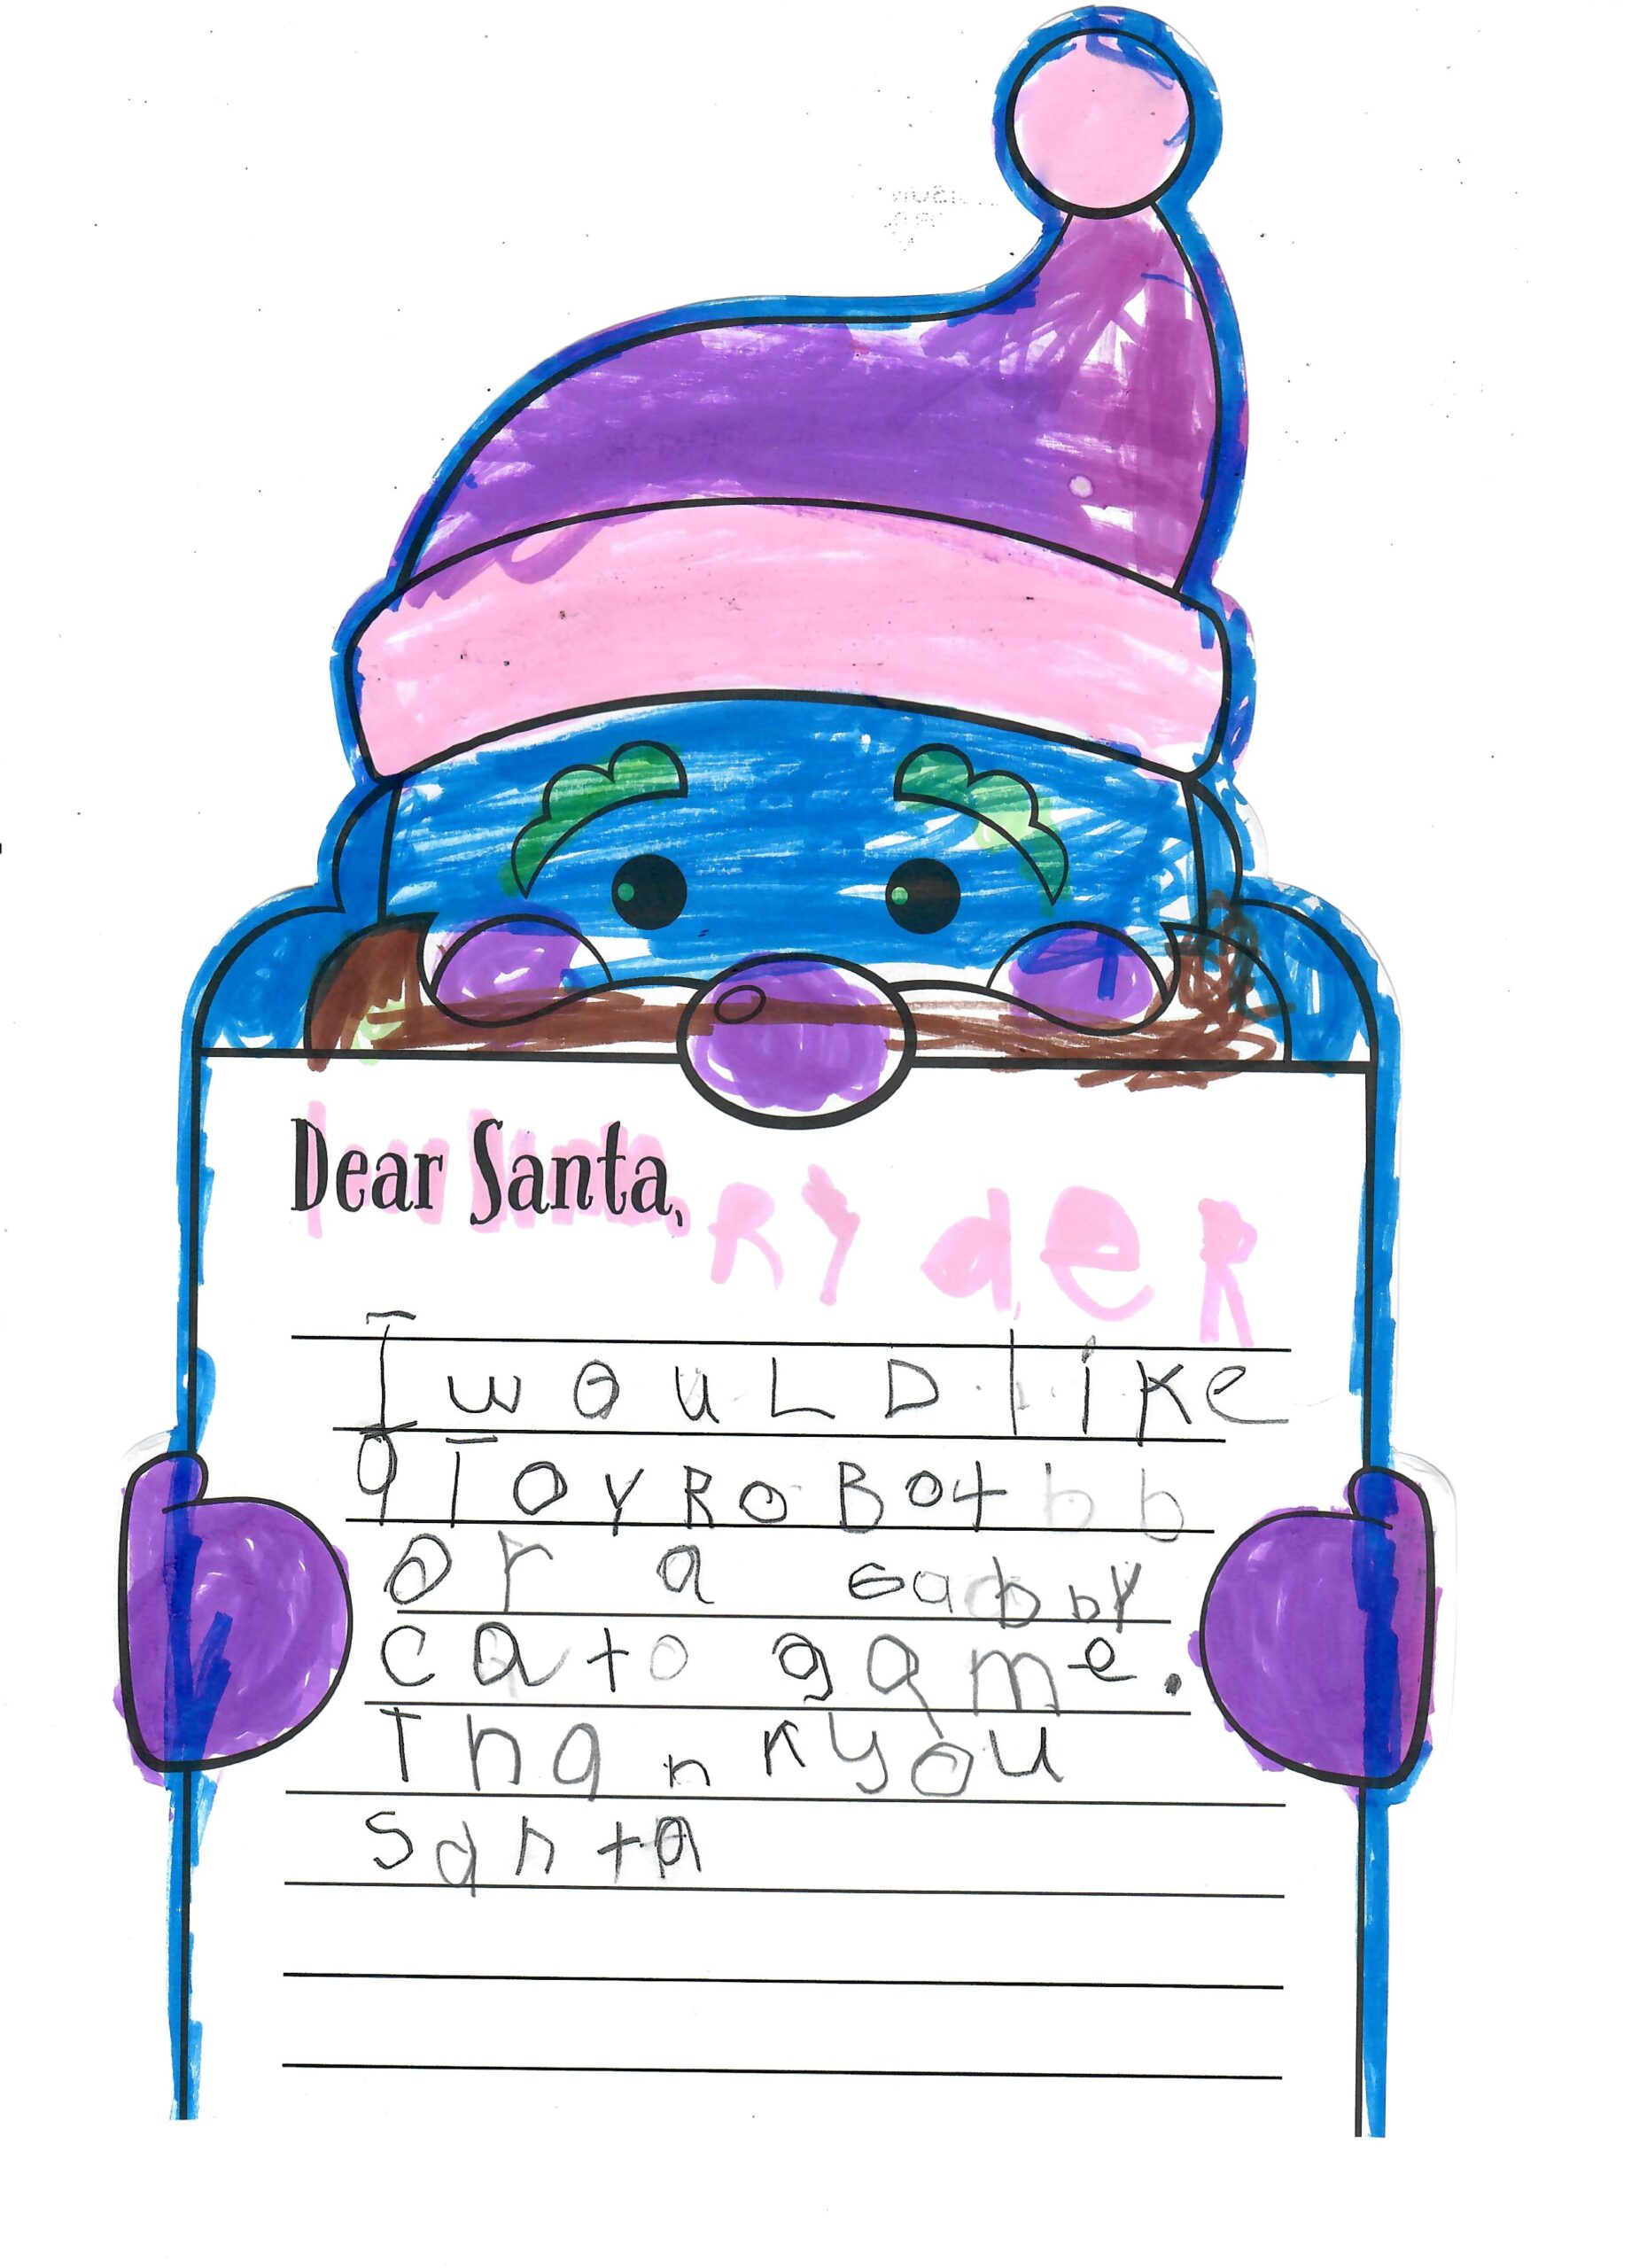 Dear Santa, RYdeR
I wouLD like
a ToyRoBot b b
or a Gabby
cato game.
Thankyou
santa